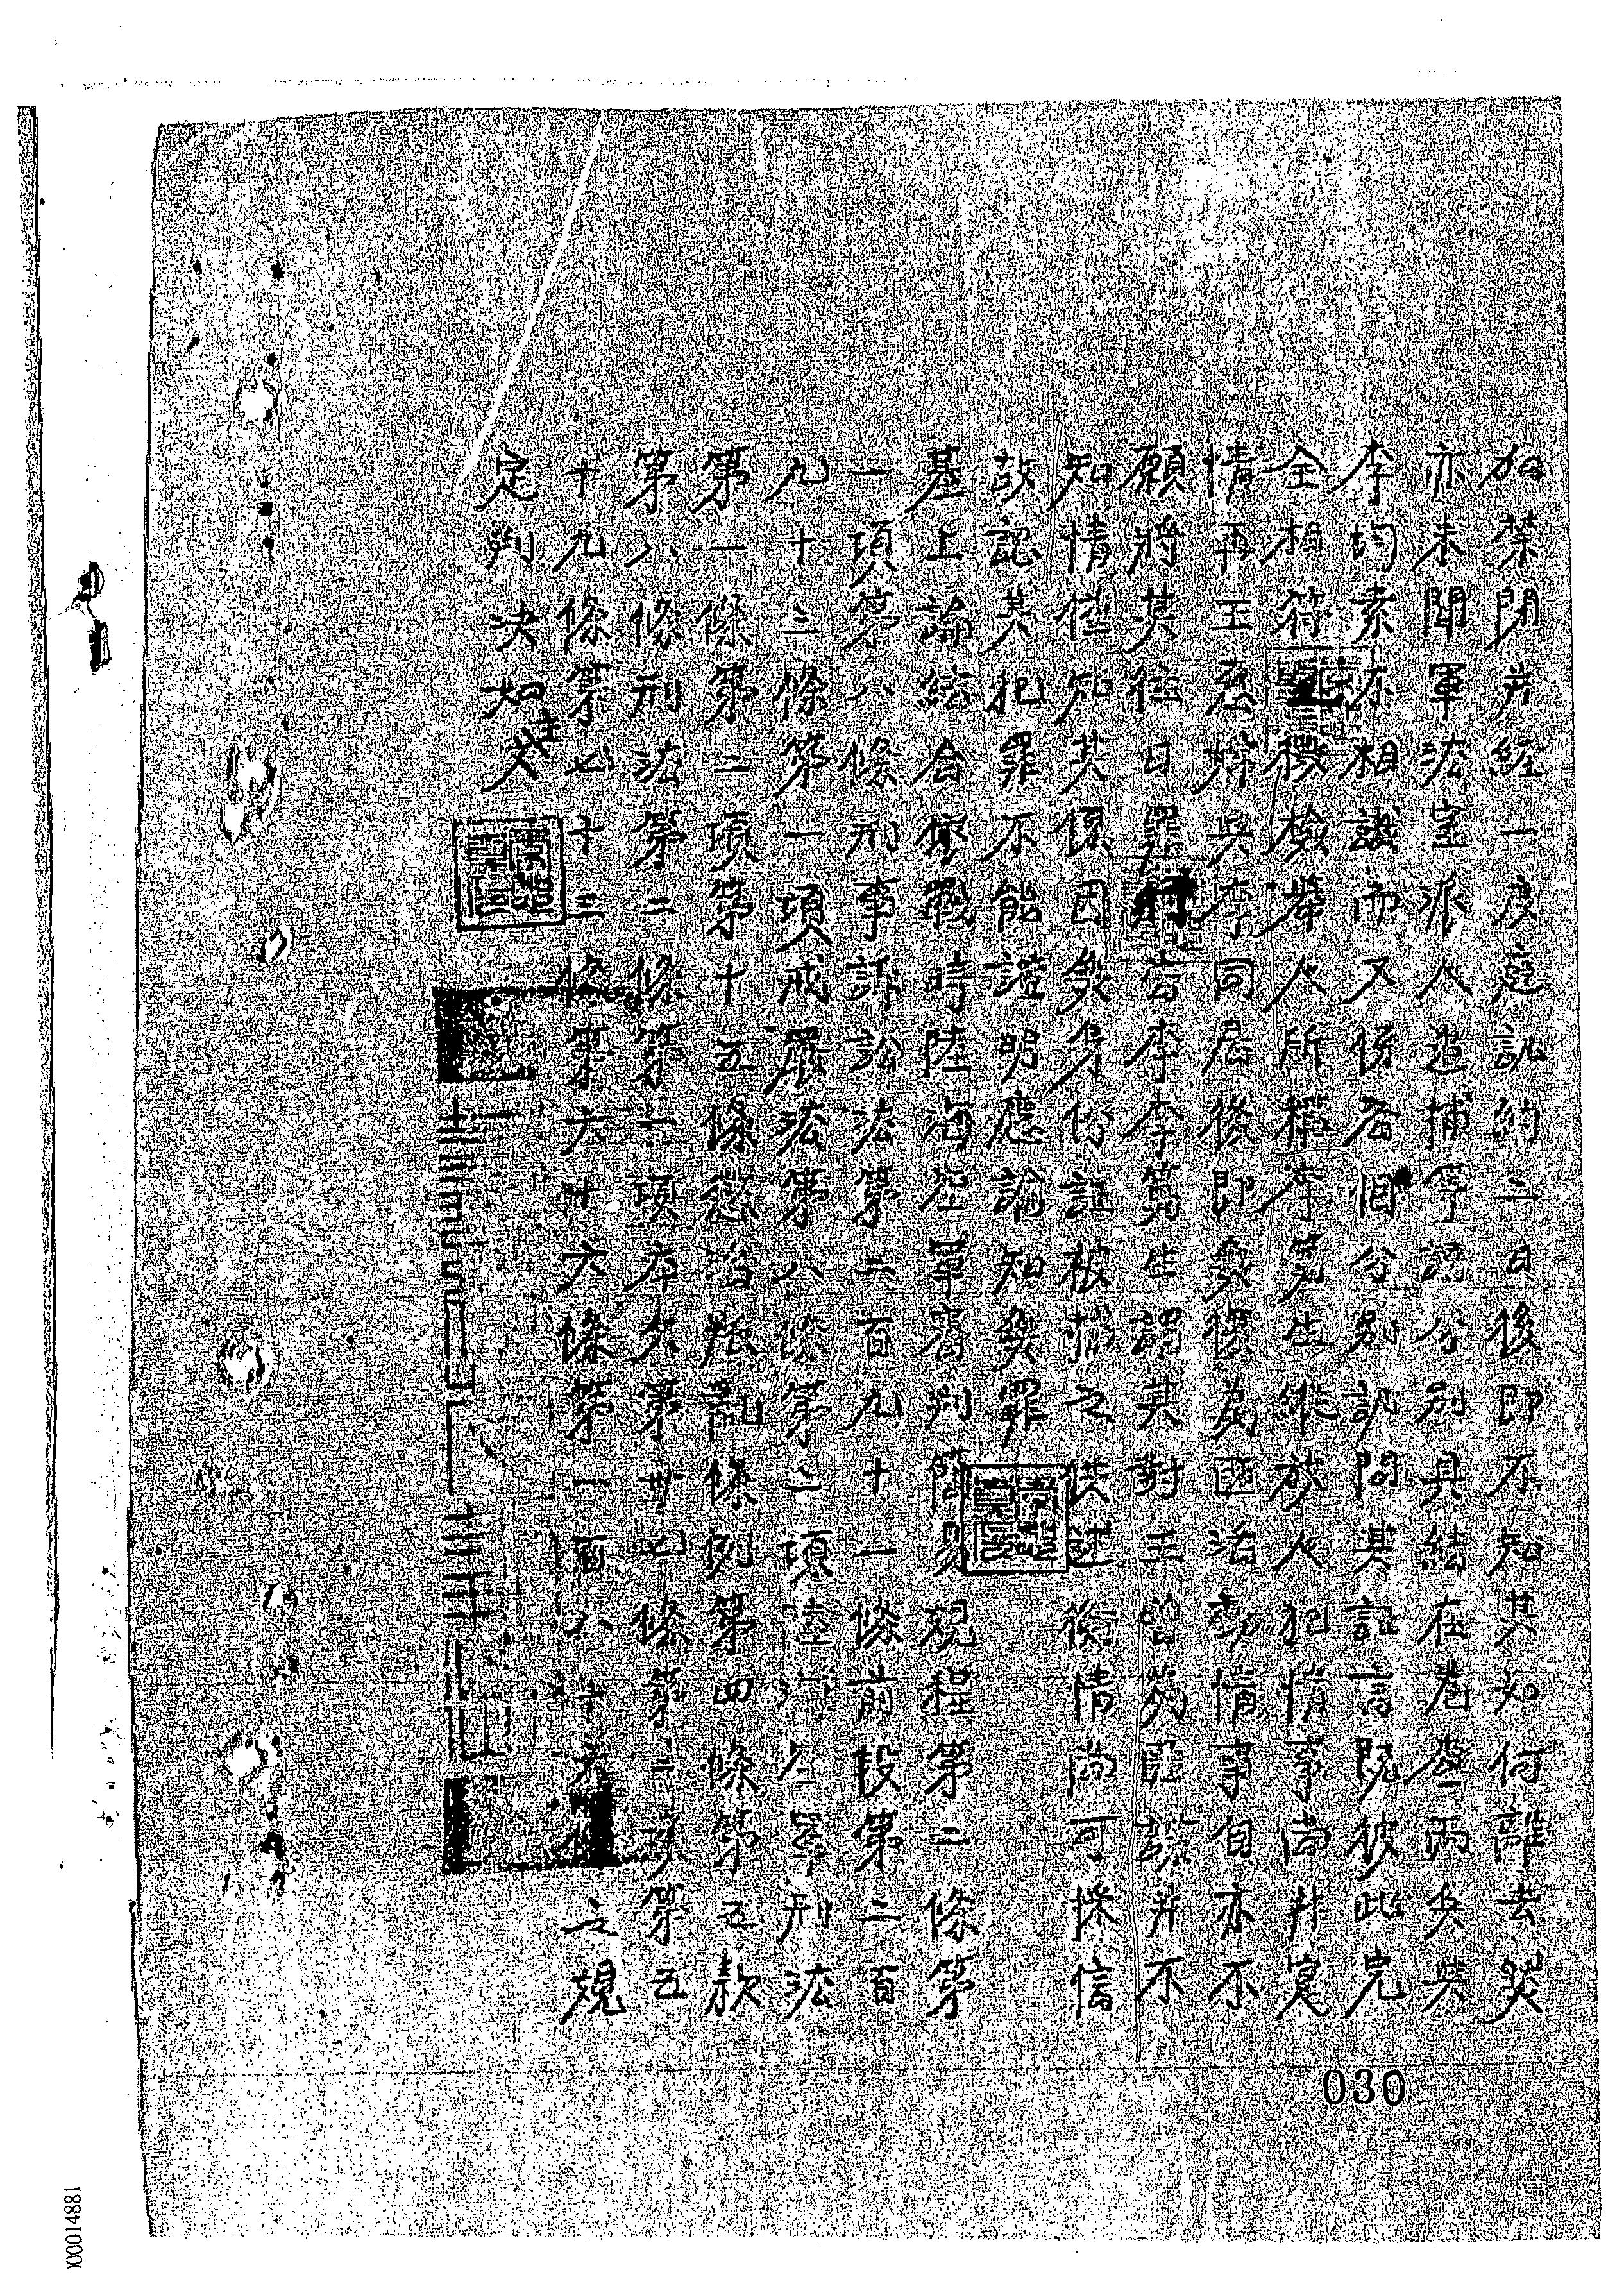 禁閉并經一度庭訊約二日後即不知其如何離去矣
亦未聞軍法室派人追捕等語分別具結在卷查兩兵與
李均素不相識而又係各個分別訊問其証言既彼此完
全相符檢舉人所稱李
生縱放人犯情事尚非實
情再王
與李同居後即
活動情事自亦不
願將其往日罪
告李李
生謂其對王曾為匪諜并不
知情僅知其係因無身份証被捕之供述衡情尚可採信
故認其犯罪不能證明應諭知無罪
基上論結合依戰時陸海空軍審判簡易規程第二條第
一項第八條刑事訴訟法第二百九十一條前段第二百
九十三條第一項戒嚴法第八條第二項陸海空軍刑法
第一條第二項第十五條懲治叛亂條例第四條第五款
第八條刑法第二條第一項
第卅七條第二項第五
十九條第七十三條第六十六條第一百六十
條之規
定判決如主文
030
00014881